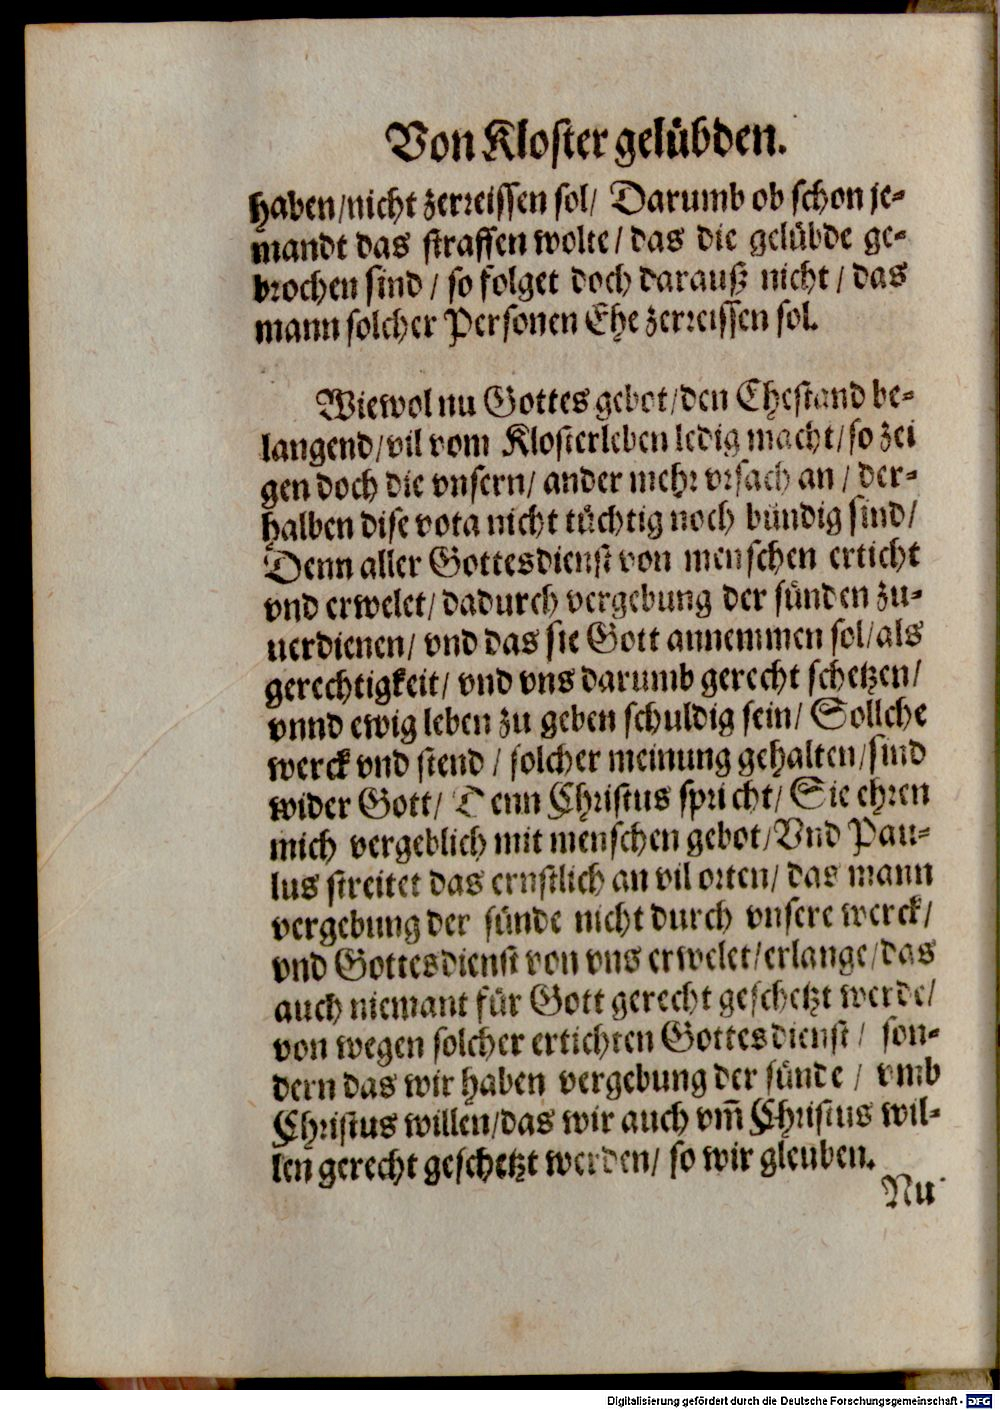 Von Kloster gelübden.
haben/nicht zerreissen sol/ Darumb ob schon je-
mandt das straffen wolte/ das die gelübde ge-
brochen sind / so folget doch darauß nicht / das
mann solcher Personen Ehe zerreissen sol.
Wiewol nu Gottes gebot/den Ehestand be-
langend/vil vom Klosterleben ledig macht/so zei
gen doch die vnsern/ ander mehr vrsach an / der-
halben dise vota nicht tüchtig noch bündig sind/
Denn aller Gottesdienst von menschen erticht
vnd erwelet/ dadurch vergebung der sünden zu-
uerdienen/ vnd das sie Gott annemmen sol/als
gerechtigkeit/ vnd vns darumb gerecht schetzen/
vnnd ewig leben zu geben schuldig sein/ Sollche
werck vnd stend / solcher meinung gehalten/sind
wider Gott/ Denn Christus spricht/ Sie ehren
mich vergeblich mit menschen gebot/Vnd Pau-
lus streitet das ernstlich an vil orten/ das mann
vergebung der sünde nicht durch vnsere werck/
vnd Gottesdienst von vns erwelet/erlange/das
auch niemant für Gott gerecht geschetzt werde/
von wegen solcher ertichten Gottesdienst / son-
dern das wir haben vergebung der sünde / vmb
Christus willen/das wir auch vm̃ Christus wil-
len gerecht geschetzt werden/ so wir gleuben.
Nu
Digitalisierung gefördert durch die Deutsche Forschungsgemeinschaft - DFG